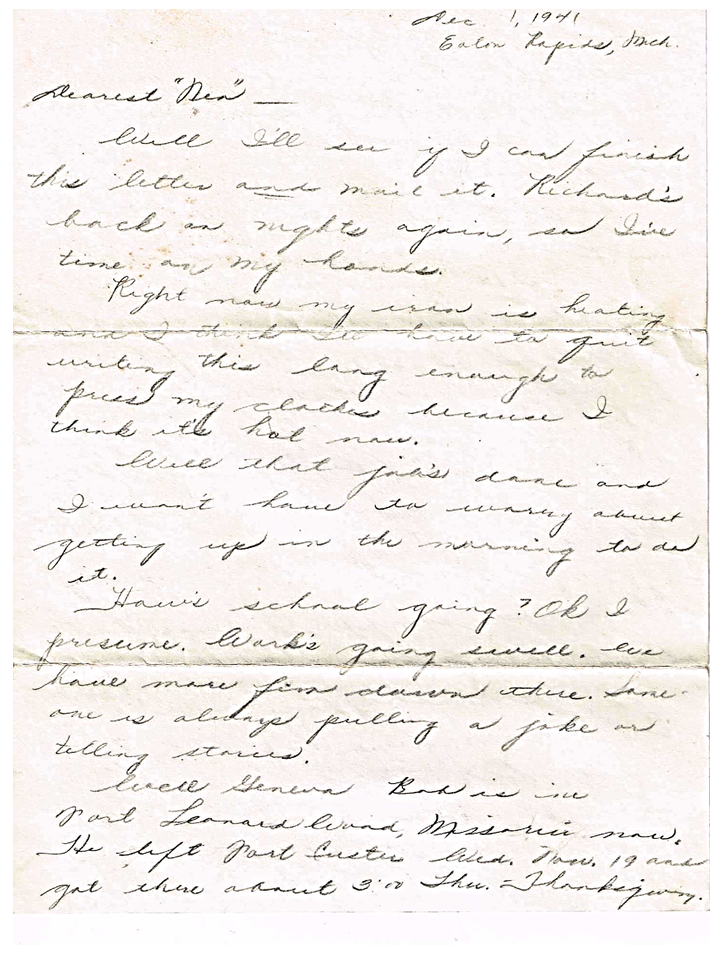 Dec 1, 1941
Eaton Rapids, Mich.
Dearest "Nea" —
Well I'll see if I can finish
this letter and mail it. Richard's
back on nights again, so I've
time on my hands.
Right now my iron is heating
and I think I'll have to quit
writing this long enough to
press my clothes because I
think it's hot now.
Well that job's done and
I won't have to worry about
getting up in the morning to do
it.
How's school going? Ok I
presume. Work's going swell. We
have more fun down there. Some-
one is always pulling a joke or
telling stories.
Well Geneva Bob is in
Fort Leonard Wood, Missouri now.
He left Fort Custer Wed. Nov. 19 and
got there about 3:00 Thu. - Thanksgiving.